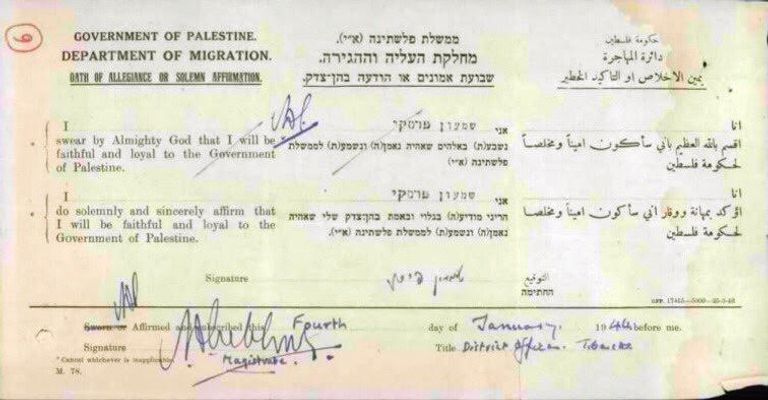 6
GOVERNMENT OF PALESTINE.
DEPARTMENT OF MIGRATION.
OATH OF ALLEGIANCE OR SOLEMN AFFIRMATION.
ממשלת פלשתינה (א״י).
מחלקת העליה וההגירה.
שבועת אמונים או הודעה בהן־צדק.
حكومة فلسطين
دائرة المهاجرة
يمين الاخلاص او التاكيد الخطير
I
swear by Almighty God that I will be
faithful and loyal to the Government
of Palestine.
אני שמעון פרסקי
נשבע(ת) באלהים שאהיה נאמן(ה) ונשמע(ת) לממשלת
פלשתינה (א״י)
انا
اقسم بالله العظيم باني سأكون اميناً ومخلصاً
لحكومة فلسطين
I
do solemnly and sincerely affirm that
I will be faithful and loyal to the
Government of Palestine.
אני שמעון פרסקי
הריני מודיע(ה) בגלוי ובאמת בהן־צדק שלי שאהיה
נאמן(ה) ונשמע(ת) לממשלת פלשתינה (א״י)
انا
اؤكد بمهانة ووقار اني سأكون اميناً ومخلصا
لحكومة فلسطين
Signature
التوقيع
החתימה
GPP. 17415—5000—25-3-43
Sworn or Affirmed and subscribed this Fourth day of January. 1944 before me.
Signature
Magistrate.
Title District Officer. Tiberias
* Cancel whichever is inapplicable.
M. 78.